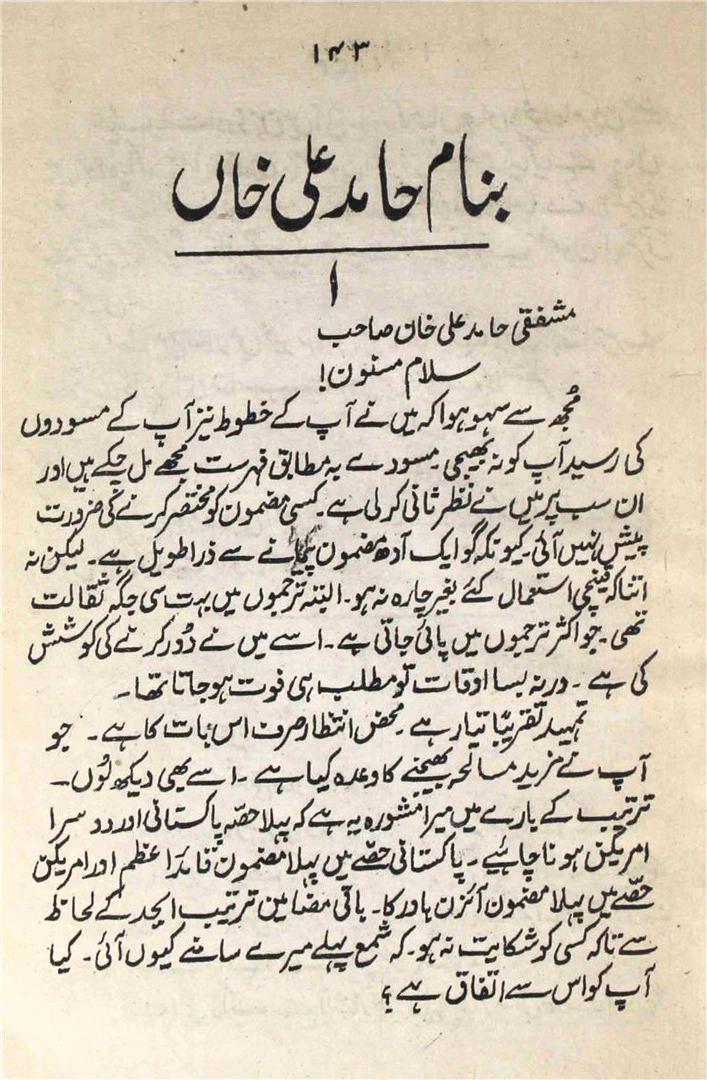 ۱۴۳
بنام حامد علی خاں
۱
مشفقی حامد علی خان صاحب
سلام مسنون!
مُجھ سے سہو ہوا کہ میں نے آپ کے خطوط نیز آپ کے مسودوں
کی رسید آپ کو نہ بھیجی۔ مسودے بہ مطابق فہرست مجھے مل چکے ہیں اور
ان سب پر میں نے نظر ثانی کر لی ہے۔ کسی مضمون کو مختصر کرنے کی ضرورت
پیش نہیں آئی۔ کیونکہ گو ایک آدھ مضمون پیمانے سے ذرا طویل ہے۔ لیکن نہ
اتنا کہ قینچی استعمال کئے بغیر چارہ نہ ہو۔ البتہ ترجموں میں بہت سی جگہ ثقالت
تھی۔ جو اکثر ترجموں میں پائی جاتی ہے۔ اسے میں نے دُور کرنے کی کوشش
کی ہے۔ ورنہ بسا اوقات تو مطلب ہی فوت ہو جاتا تھا۔
تمہید تقریباً تیار ہے۔ محض انتظار صرف اس بات کا ہے۔ جو
آپ نے مزید مسالحہ بھیجنے کا وعدہ کیا ہے۔ اسے بھی دیکھ لُوں۔
ترتیب کے بارے میں میرا مشورہ یہ ہے کہ پہلا حصّہ پاکستانی اور دوسرا
امریکن ہونا چاہئیے۔ پاکستانی حصّے میں پہلا مضمون قائداعظم اور امریکن
حصّے میں پہلا مضمون آئزن ہاور کا۔ باقی مضامین ترتیب ابجد کے لحاظ
سے تاکہ کسی کو شکایت نہ ہو۔ کہ شمع پہلے میرے سامنے کیوں آئی۔ کیا
آپ کو اس سے اتفاق ہے؟